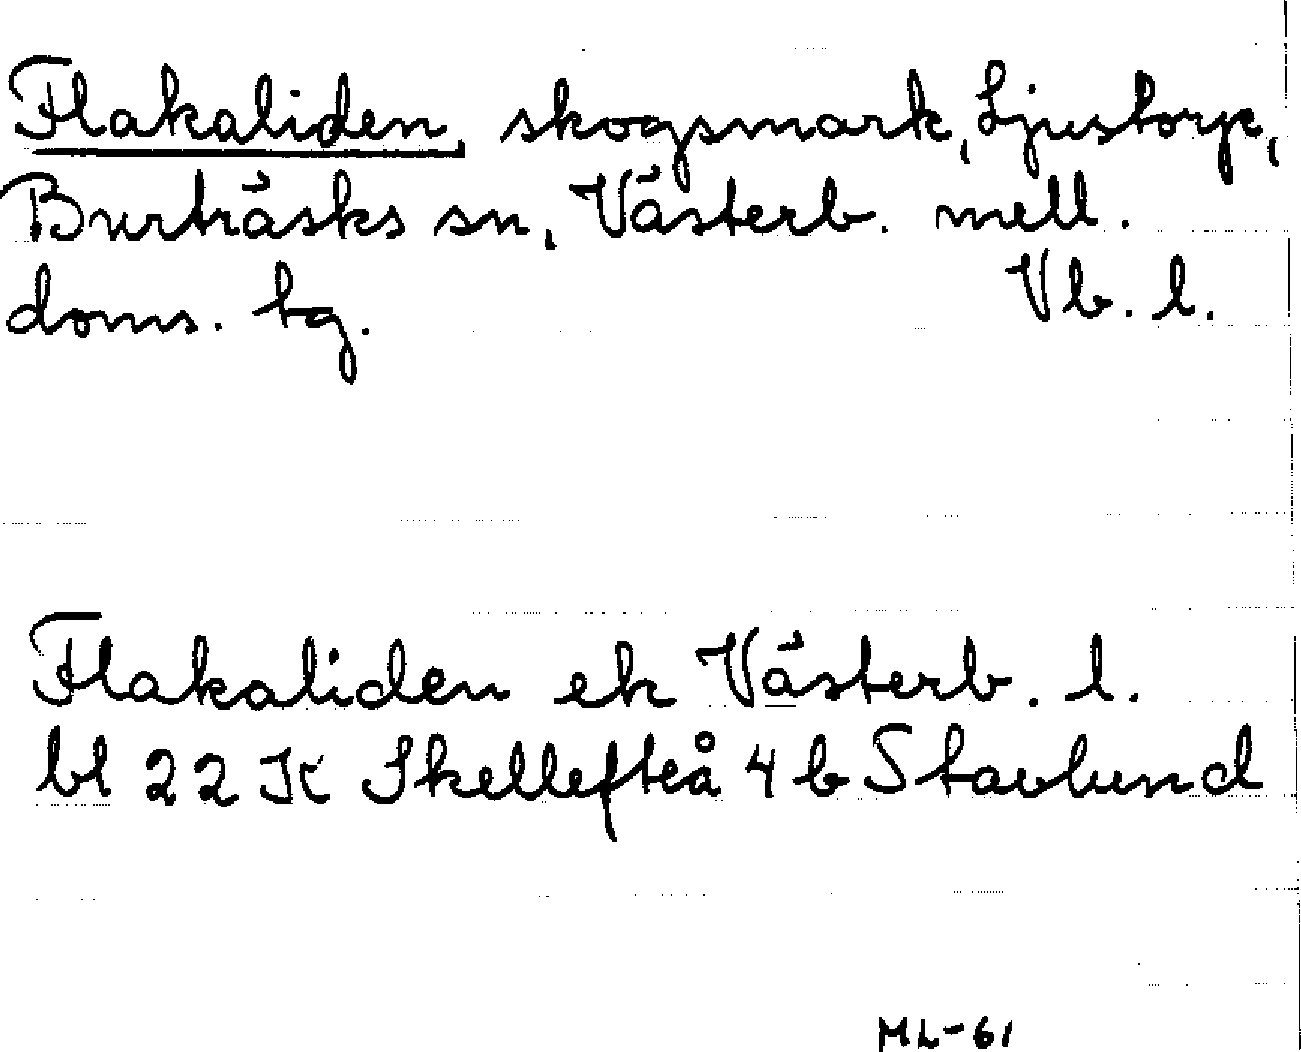 Flakaliden, skogsmark, Ljustorp,
Burträsks sn, Västerb. mell.
doms. tg. Vb. l.
Flakaliden ek Västerb. l.
bl 22 K Skellefteå 4 b Stavlund
ML-61